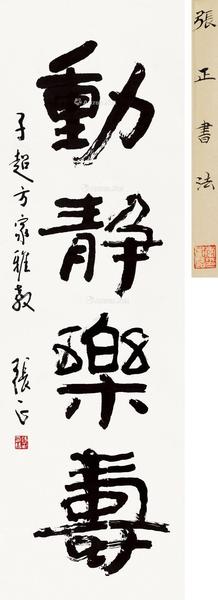 動靜樂壽
子超方家雅教
張正
張正書法